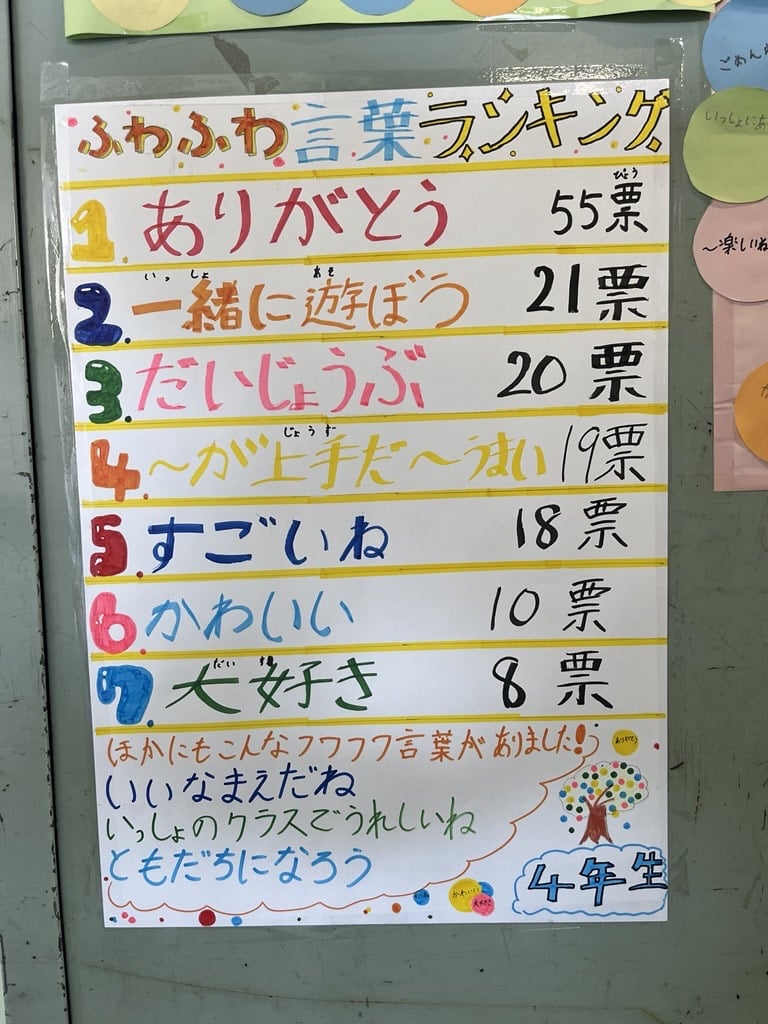 ふわふわ言葉ランキング
1. ありがとう 55票
びょう
2. 一緒に遊ぼう 21票
いっしょ あそ
3. だいじょうぶ 20票
4. ～が上手だ～うまい 19票
じょうず
5. すごいね 18票
6. かわいい 10票
7. 大好き 8票
だい す
ほかにもこんなフワフワ言葉がありました!
いいなまえだね
いっしょのクラスでうれしいね
ともだちになろう
ありがとう
かわいい
大好き
4年生
ごめんね
いっしょにあ
～楽しいね